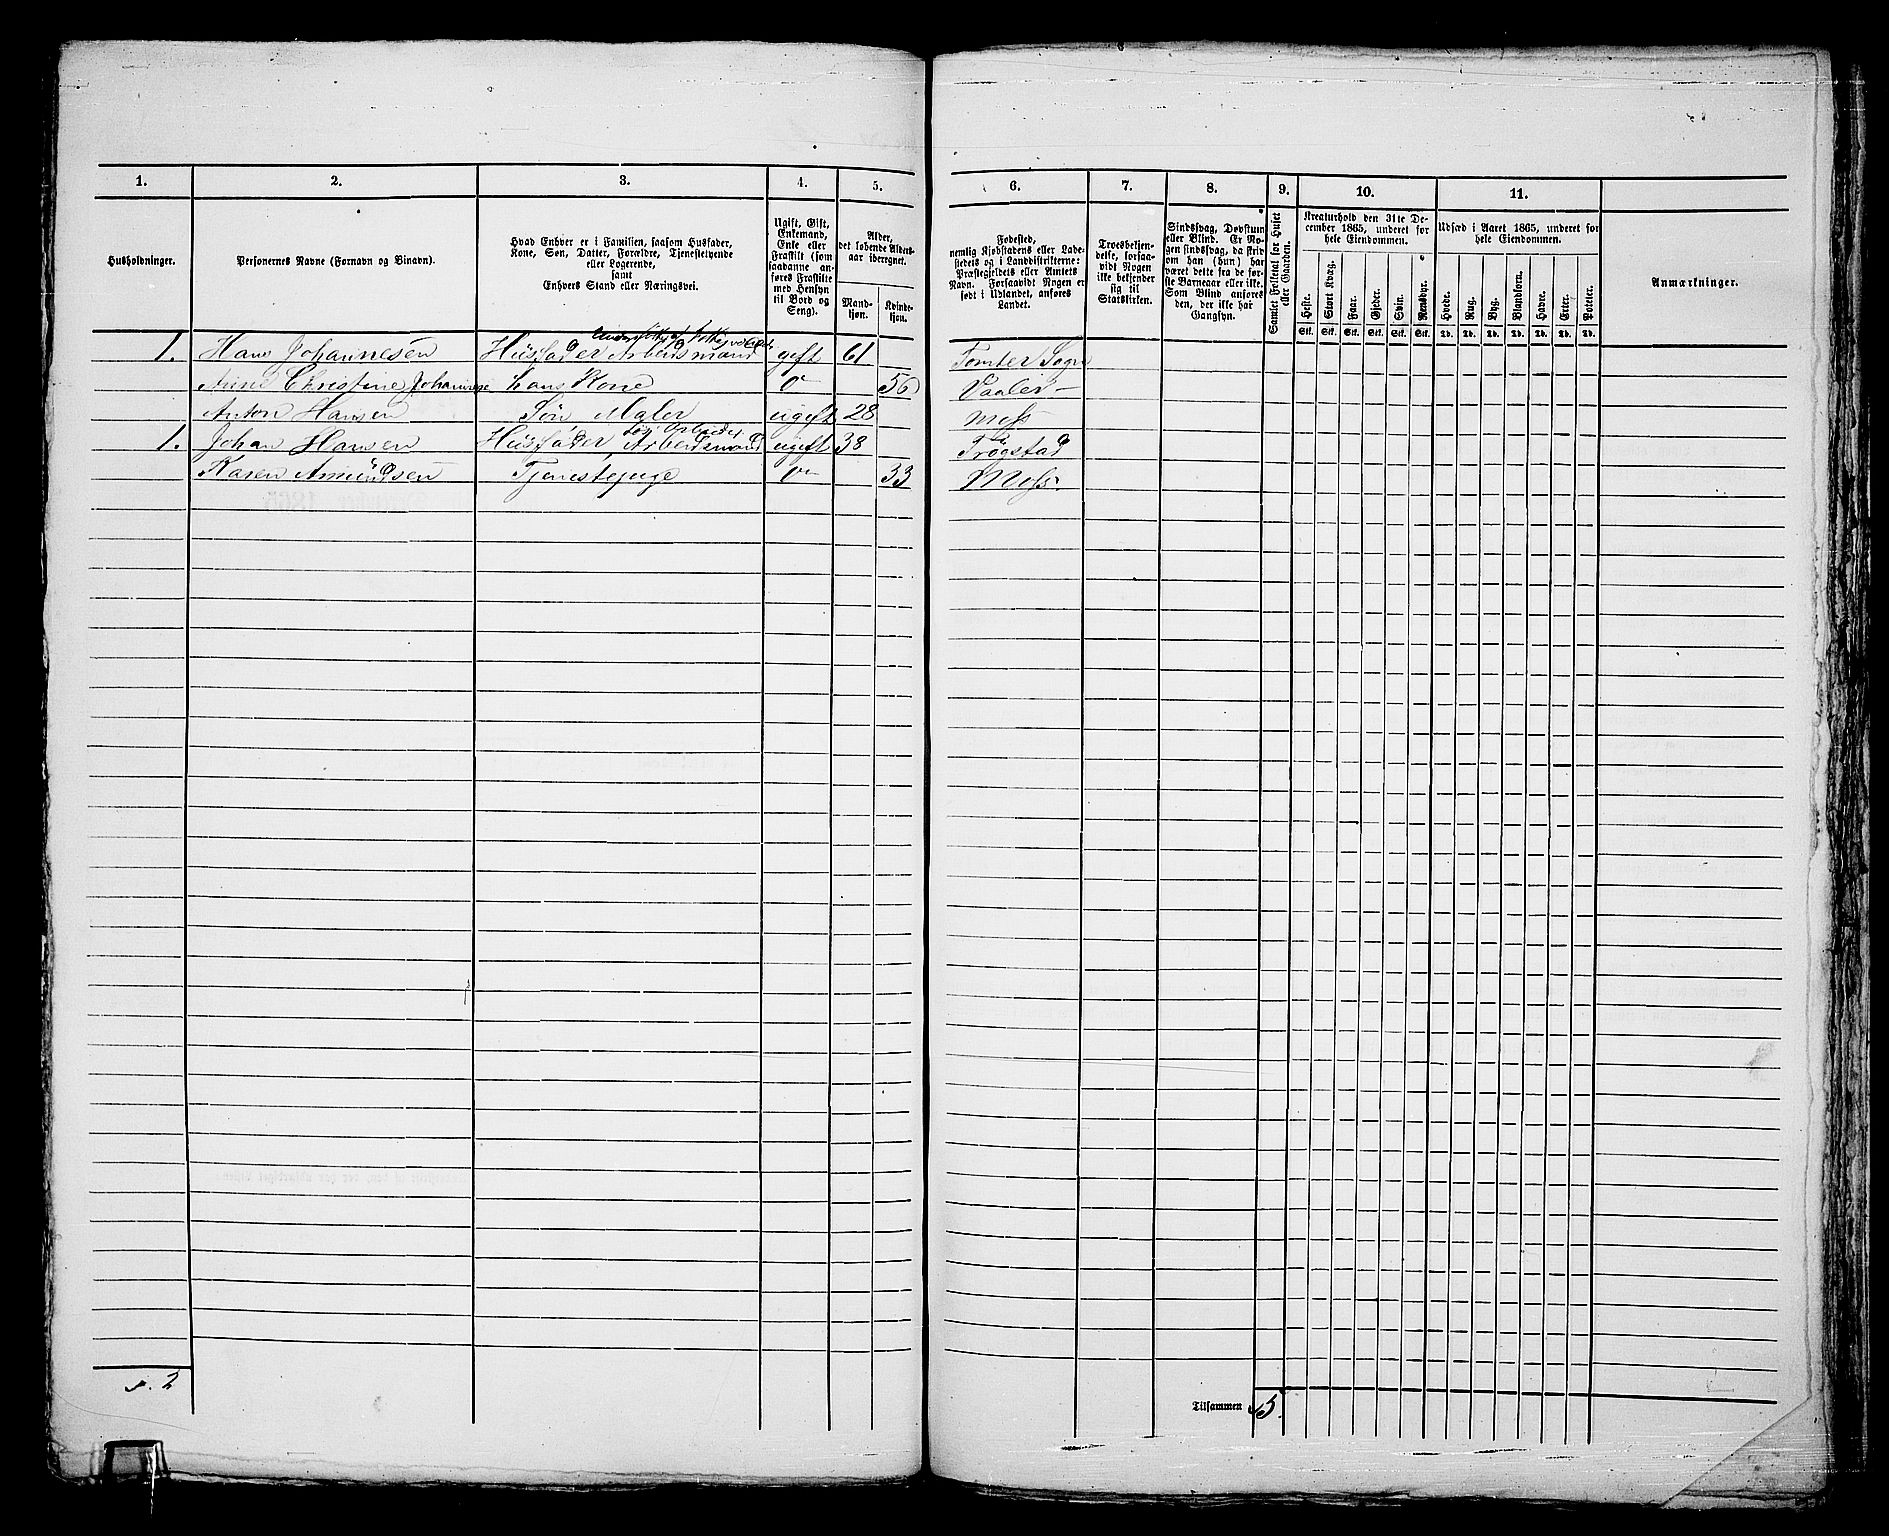 1. 2. 3. 4. 5. 6. 7. 8. 9. 10. 11.
Husholdninger.
Personernes Navne (Fornavn og Binavn).
Hvad Enhver er i Familien, saasom Husfader,
Kone, Søn, Datter, Forældre, Tjenestetyende
eller Logerende,
samt
Enhvers Stand eller Næringsvei.
Ugift, Gift,
Enkemand,
Enke eller
Fraskilt (som
saadanne an-
føres Fraskilte
med Hensyn
til Bord og
Seng).
Alder,
det løbende Alders-
aar iberegnet.
Mand-
kjøn.
Kvinde-
kjøn.
Fødested,
nemlig Kjøbstadens eller Lade-
stedets og i Landdistrikterne:
Præstegjeldets eller Amtets
Navn. Forsaavidt Nogen er
født i Udlandet, anføres
Landet.
Troesbekjen-
delse, forsaa-
vidt Nogen
ikke bekjender
sig til
Statskirken.
Sindssvag, Døvstum
eller Blind. Er No-
gen sindssvag, da skrives
om han (hun) har
været dette fra de før-
ste Barneaar eller ikke.
Som Blind anføres
den, der ikke har
Gangsyn.
Samlet Folketal for Huset
eller Gaarden.
Kreaturhold den 31te De-
cember 1865, underet for
hele Eiendommen.
Heste. Stort Kvæg. Faar. Gjeder. Svin. Rensdyr.
Stk. Stk. Stk. Stk. Stk. Stk.
Udsæd i Aaret 1865, underet for
hele Eiendommen.
Hvede. Rug. Byg. Blandkorn. Havre. Erter. Poteter.
Td. Td. Td. Td. Td. Td. Td.
Anmærkninger.
1. Hans Johannesen Husfader Arbeidsmand gift 61 Tomter Sogn
Anne Christine Johannese hans Kone 56 Vaaler
Anton Hansen Søn Maler ugift 28 Moss
1. Johan Hansen Husfader, Arbeidsmand ugift 38 Trøgstad
Karen Amundsen Tjenestepige 33 Moss.
2
Tilsammen 5.